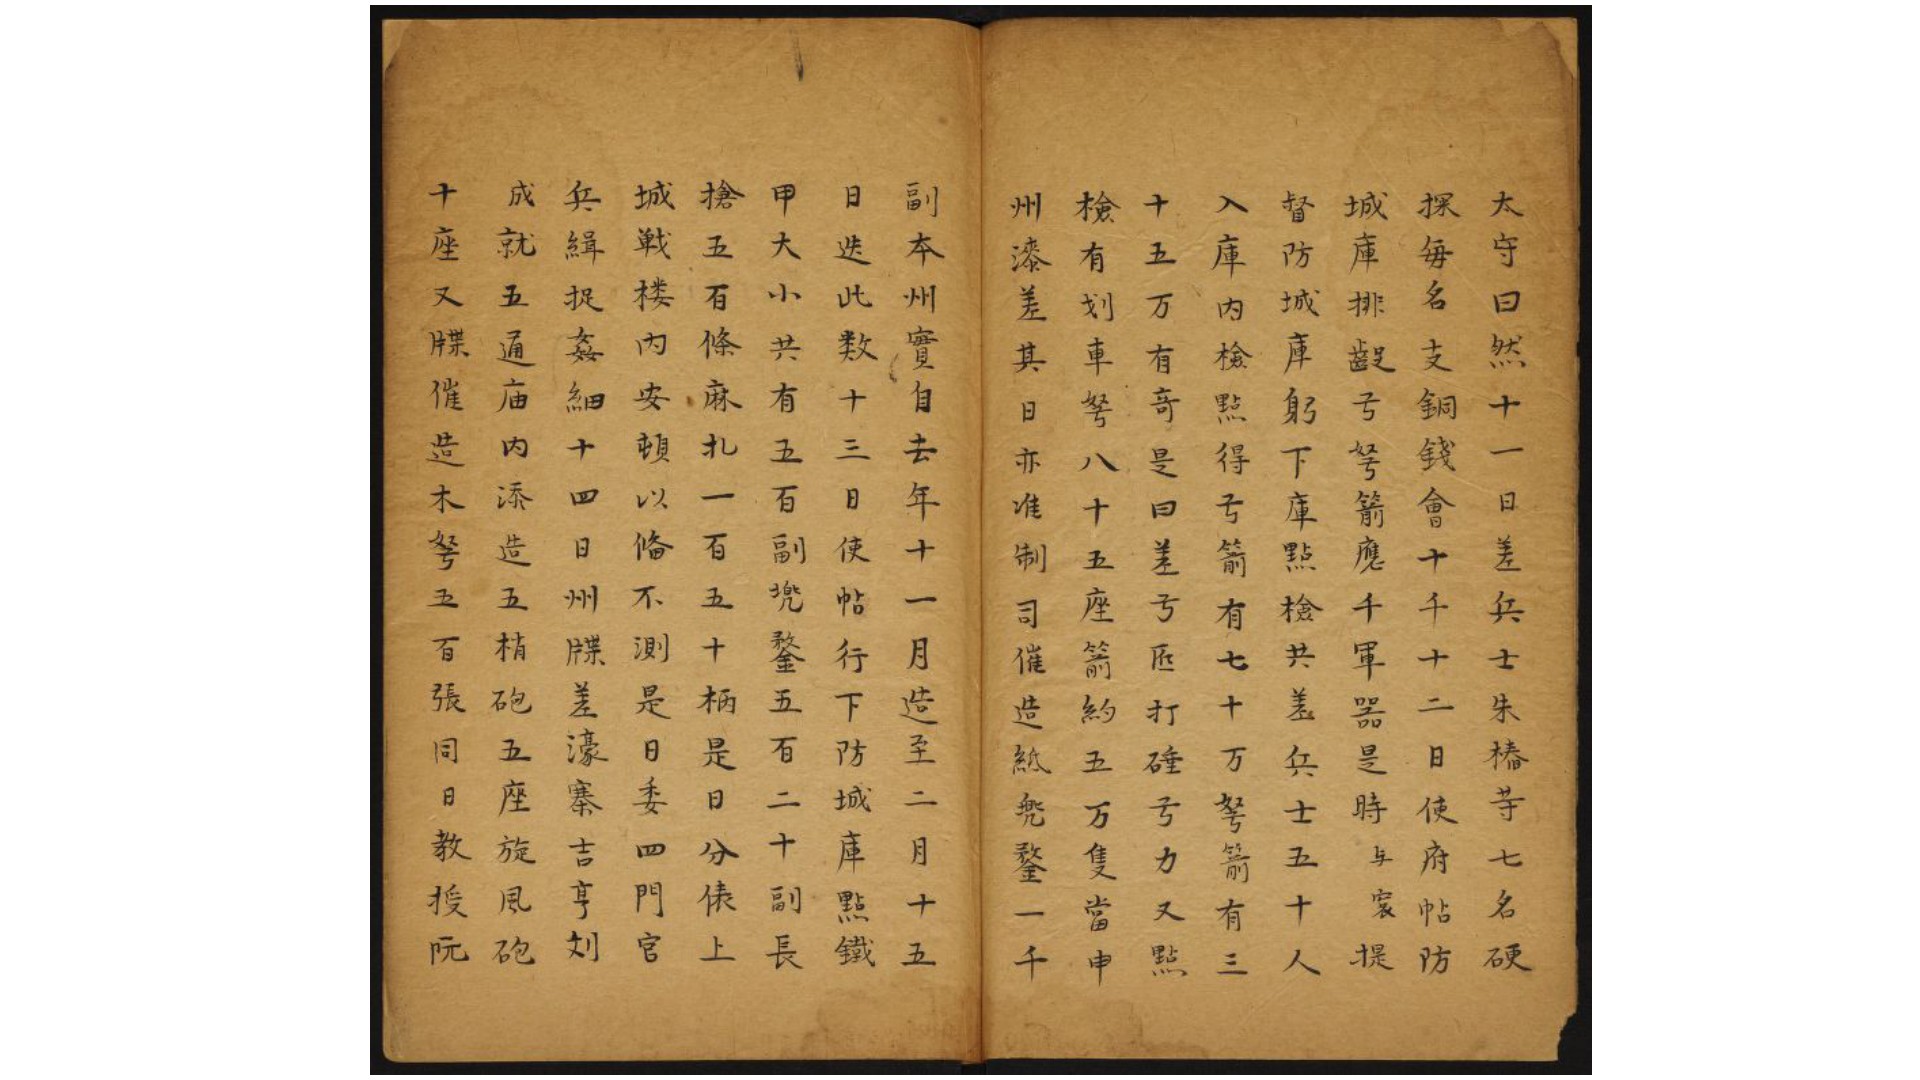 太守曰然十一日差兵士朱椿䓁七名硬
探每名支銅錢會十千十二日使府帖防
城庫排齪弓弩箭應千軍器是時与寀提
督防城庫躬下庫點檢共差兵士五十人
入庫内檢點得弓箭有七十万弩箭有三
十五万有奇是日差弓匠打硾弓力又點
檢有划車弩八十五座箭約五万隻當申
州漆差其日亦准制司催造紙兠鍪一千
副本州實自去年十一月造至二月十五
日迭此数十三日使帖行下防城庫點鐵
甲大小共有五百副兠鍪五百二十副長
搶五百條麻扎一百五十柄是日分俵上
城戦楼内安頓以俻不測是日委四門官
兵緝捉姦細十四日州牒差濠寨吉亨刘
成就五通庙内添造五梢砲五座旋风砲
十座又牒催造木弩五百張同日教授阮